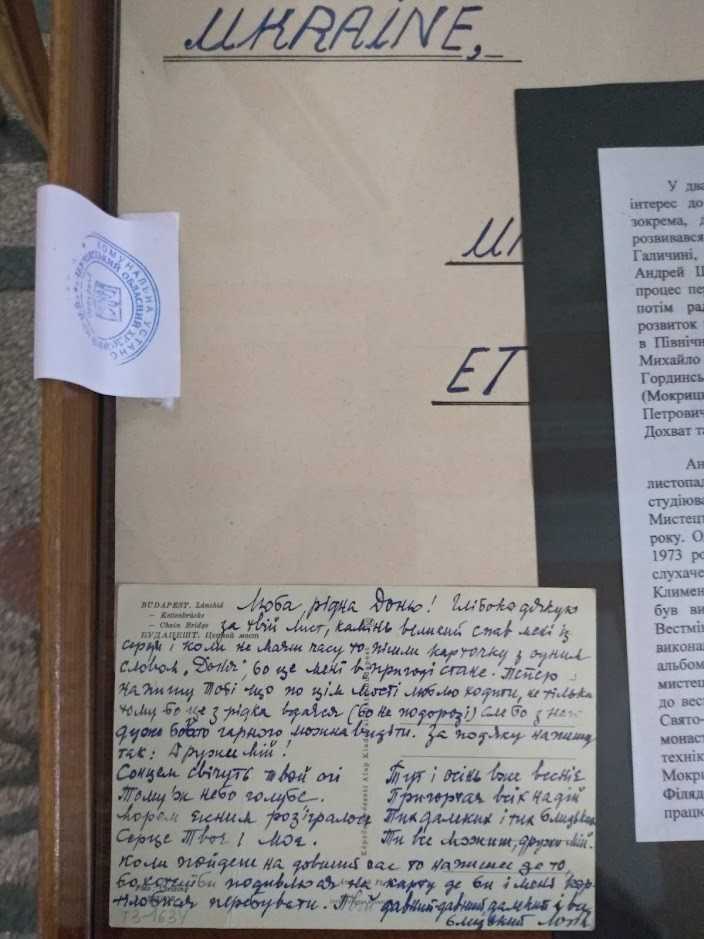 UKRAINE,
ET
КОМУНАЛЬНА УСТАН
ОБЛАСНИЙ
У два
інтерес до
зокрема, д
розвивався
Галичині,
Андрей Ш
процес пе
потім рад
розвиток
в Північн
Михайло
Гординсь
(Мокриц
Петрович
Дохват та
Ан
листопад
студіюва
Мистецт
року. О
1973 ро
слухаче
Климен
був ви
Вестмі
викона
альбом
мистец
до вес
Свято-
монаст
технік
Мокри
Філяд
працю
BUDAPEST. Lánchíd
— Kettenbrücke
— Chain Bridge
БУДАПЕШТ. Цепной мост
Люба, рідна Доню! Глібоко дякую
за твій лист, камінь великий спав мені із
серця і коли не маєш часу то пишли карточку з одним
словом "Доня", бо це мені в пригоді стане. Тепер
напишу Тобі що по цім мості люблю ходити, не тілько
тому бо це з рідка вдаєся (бо не подорозі) але бо з него
дуже богато гарного можна видіти. За подяку напишу
так: Друже мій!
Сонцем свічуть твої очі
Тому'ж небо голубе.
Морем ясним розігралося
Серце Твоє і моє.
Тут і осінь вже весніє
Пригортая всіх надій
Тих далеких і тих близьких
Ти все можиш, друже мій.
Коли пойдеш на довший час то напишеш де то,
бо хотів би подивлюся на карту де би і меня
перебувати. Твій давний-давний далекий і
близький
ТЗ-1634